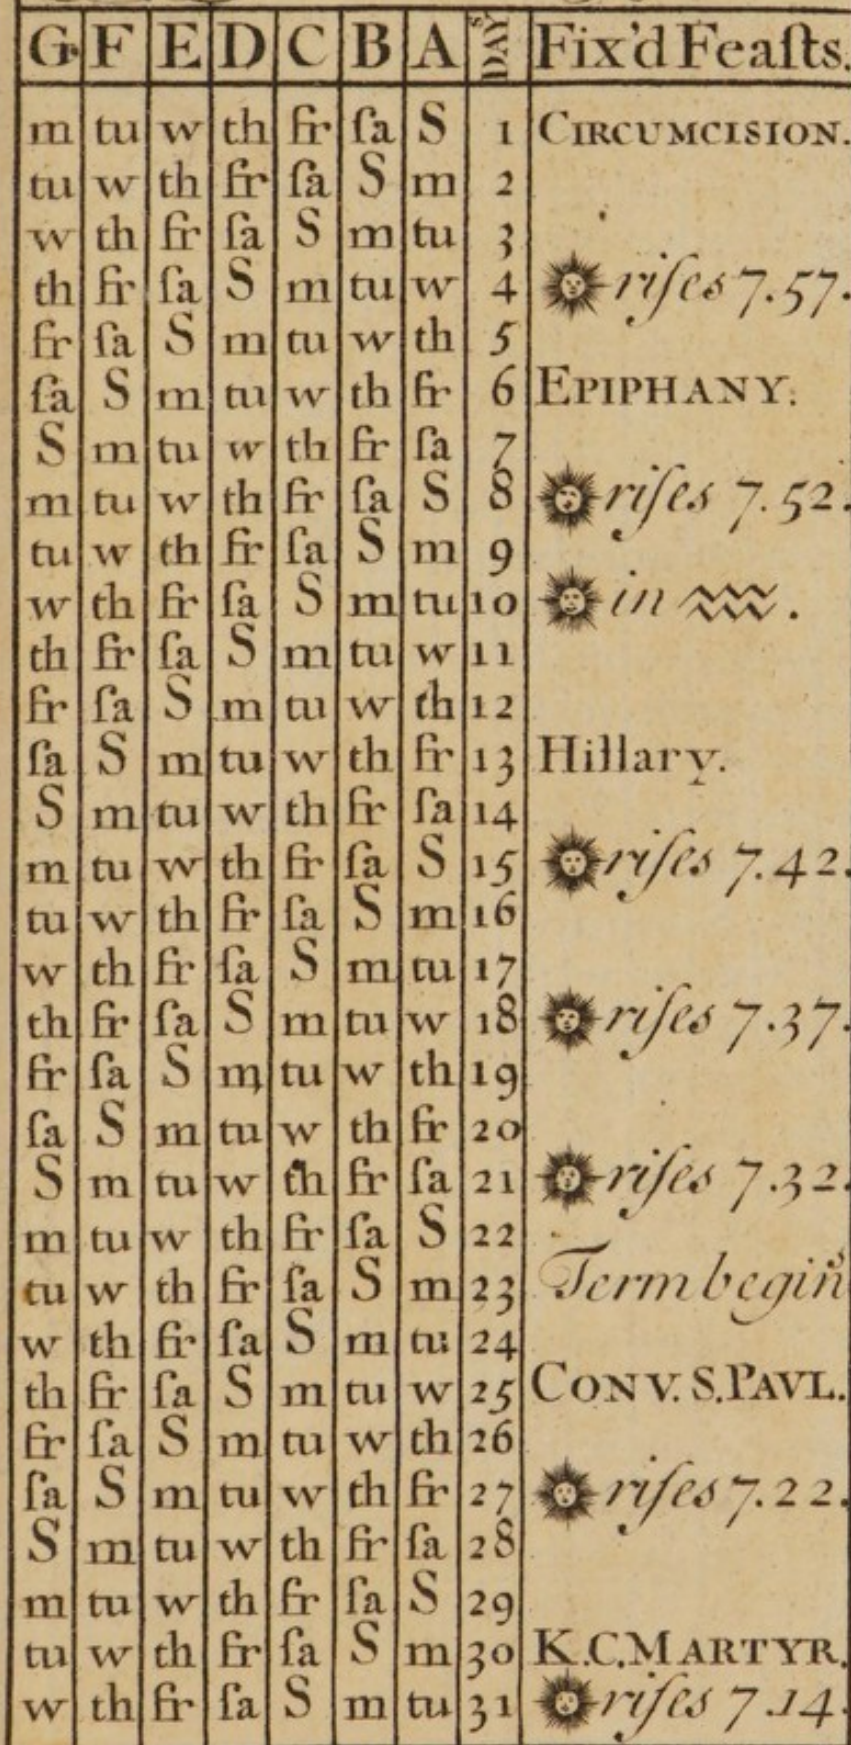 G F E D C B A DAYˢ Fix'd Feaſts.
m tu w th fr ſa S 1 CIRCUMCISION.
tu w th fr ſa S m 2
w th fr ſa S m tu 3
th fr ſa S m tu w 4 riſes 7.57.
fr ſa S m tu w th 5
ſa S m tu w th fr 6 EPIPHANY.
S m tu w th fr ſa 7
m tu w th fr ſa S 8 riſes 7.52.
tu w th fr ſa S m 9
w th fr ſa S m tu 10 in ♒.
th fr ſa S m tu w 11
fr ſa S m tu w th 12
ſa S m tu w th fr 13 Hillary.
S m tu w th fr ſa 14
m tu w th fr ſa S 15 riſes 7.42.
tu w th fr ſa S m 16
w th fr ſa S m tu 17
th fr ſa S m tu w 18 riſes 7.37.
fr ſa S m tu w th 19
ſa S m tu w th fr 20
S m tu w th fr ſa 21 riſes 7.32.
m tu w th fr ſa S 22
tu w th fr ſa S m 23 Term beginˢ
w th fr ſa S m tu 24
th fr ſa S m tu w 25 CONV. S. PAVL.
fr ſa S m tu w th 26
ſa S m tu w th fr 27 riſes 7.22.
S m tu w th fr ſa 28
m tu w th fr ſa S 29
tu w th fr ſa S m 30 K.C. MARTYR.
w th fr ſa S m tu 31 riſes 7.14.